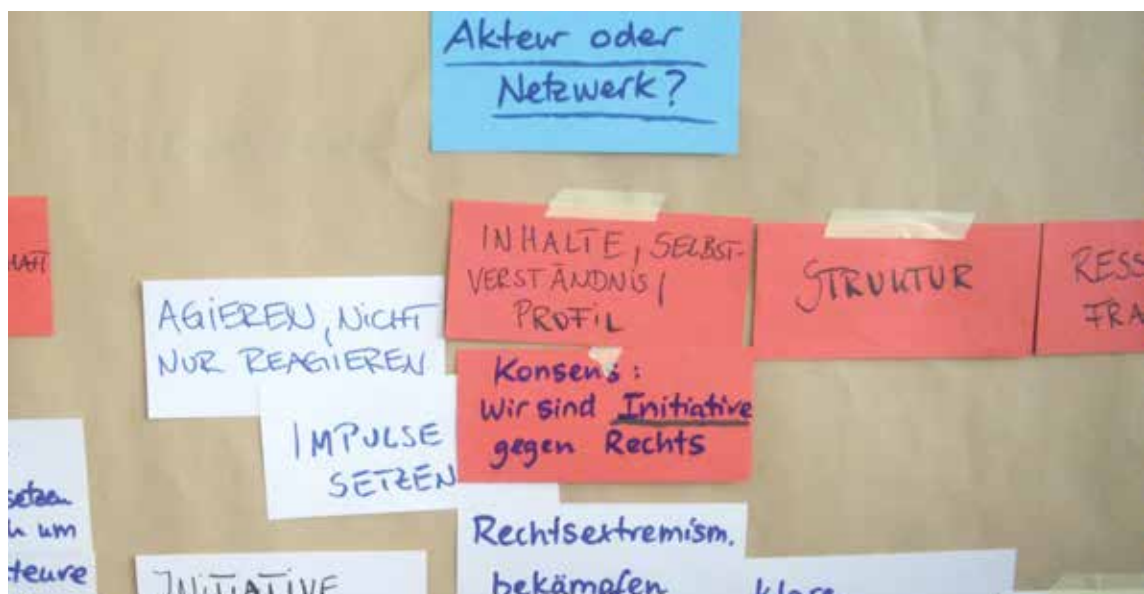 Akteur oder
Netzwerk?
INHALTE, SELBST-
VERSTÄNDNIS,
PROFIL
STRUKTUR
RESS
FRA
AGIEREN, NICHT
NUR REAGIEREN
IMPULSE
SETZEN
Konsens:
Wir sind Initiative
gegen Rechts
setzen
um
teure
INITIATIVE
Rechtsextremism.
bekämpfen
klare